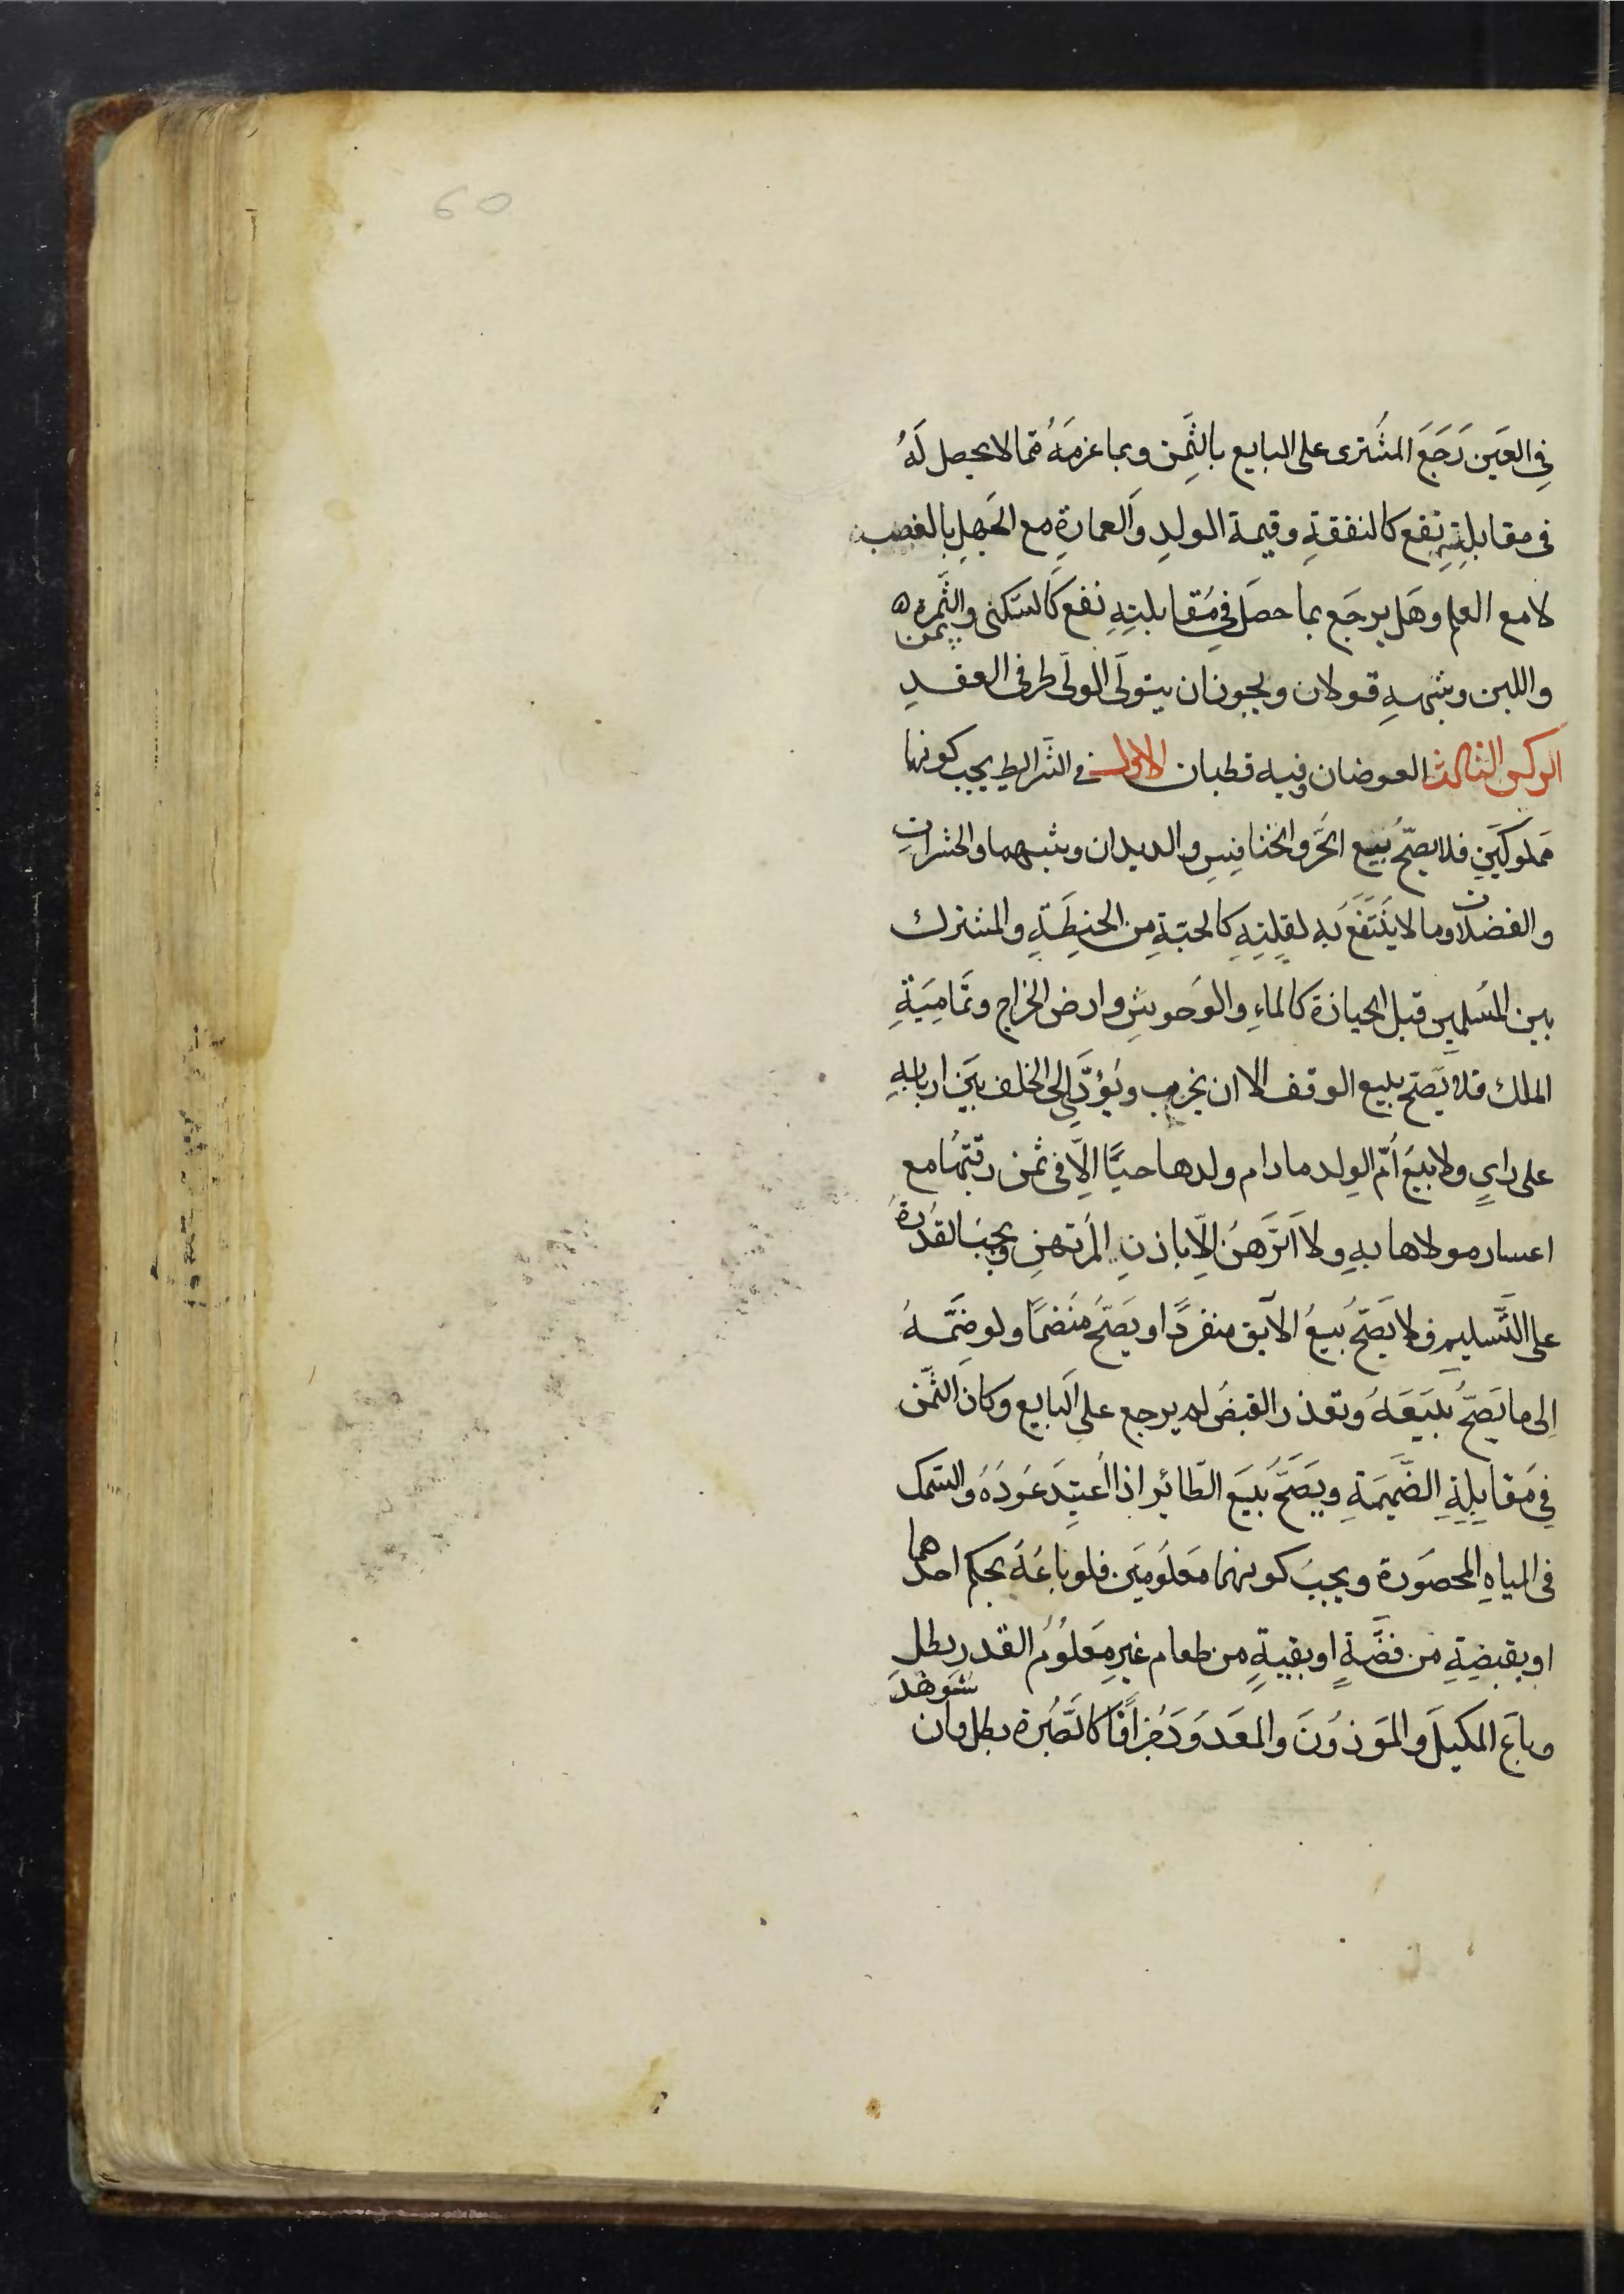 60
فِي العَين رَجَعَ المشُترى على البايع بالثَّمِن وبما غرمَهُ ممّا لا يحصل لَهُ
فى مقابلتِهِ نفع كالنفقةِ وقيمة الولدِ وَالعمارةِ مع الجَهلِ بالغصب
لا مع العلم وهَل يرجَع بما حصَل فِي مُقابلتِهِ نفع كَالسّكنى والثَّمرة
واللبن وشبهِهِ قولان ويجوز ان يتولَى الولَى طرفى العقدِ
الركن الثالث العوضان وفيه قطبان الاول في الشَّرايط يجب كونهما
مَملوكَين فلا يصّحُ بَيع الحُر والخنافِسِ والديدان وشبههما والحشراتِ
والفضلات وما لا ينَتَفعَ بَهِ لقِلتِهِ كالحبّةِ مِن الحنِطَةِ والمشترك
بين المُسلمين قبل الحيازة كالماءِ والوَحوشِ وارض الخراج وتَمامِيَةِ
الملك فلا يَصَح بيع الوقف الا ان يخرب ويُؤدَّي اِلى الخلف بَين اربابِهِ
على رايٍ ولا بيَع اُمّ الوِلد مادام ولدها حيًّا الّا فى ثمن رقبتِهُا مع
اعسار مولاها بهِ ولا اَلرَهنُ الّا باذنِ المُرتهنِ ويجبُ القُدرةُ
على التَّسليم ف لا يَصَحّ بَيعُ الآبق منفردًا و يَصَحّ مُنضمًا ولو ضَمَّهُ
اِلى ما يَصَحّ بَيَعَهُ وتعذر القبضُ لم يرجع على اَلبايع وكان الثَّمن
فِي مَقابِلةِ الضَّميَمةِ ويَصَحّ بَيَع الطّائر اذا اُعتِيدَ عَودُهُ والسّمك
فى المياهِ المحصَورة ويجبَ كونهما مَعلُومَين فلو باعُهَ بحكم احدهما
او بقبضِةِ مِن فضّةٍ او بقبةٍ مِن طعام غيرِ مَعلُومُ القدر بطل
و باَعَ المكيلَ والمَوزوُنَ والمعَدوَدَ جُزافًا كالصُّبرة بطل وان
شوهدَ